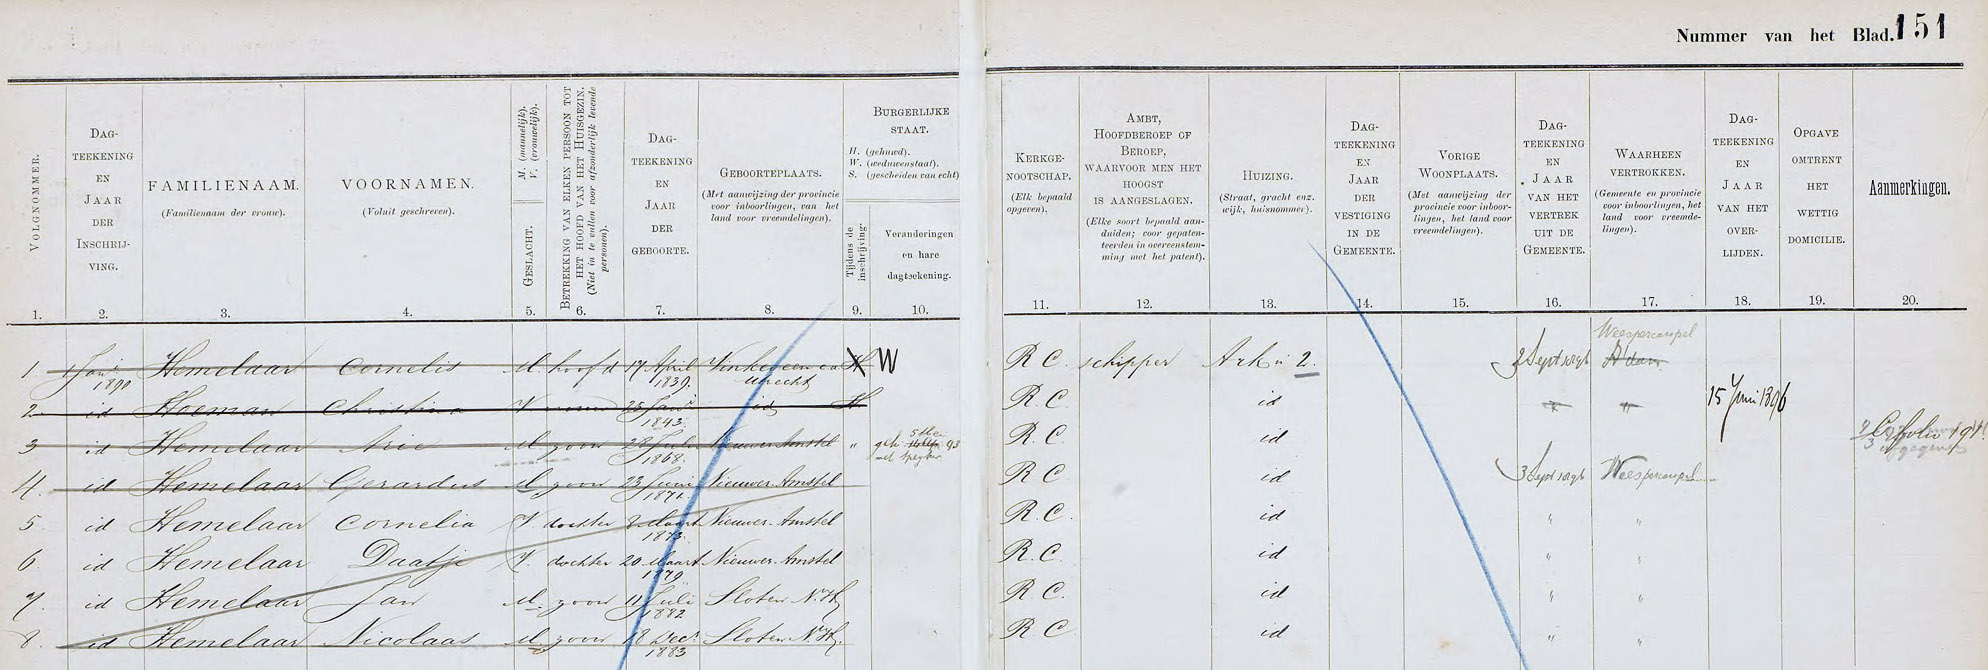 Nummer van het Blad. 151
VOLGNOMMER.
DAG-
TEEKENING
EN
JAAR
DER
INSCHRIJ-
VING.
FAMILIENAAM.
(Familienaam der vrouw).
VOORNAMEN.
(Voluit geschreven).
GESLACHT. M. (mannelijk).
V. (vrouwelijk).
BETREKKING VAN ELKEN PERSOON TOT
HET HOOFD VAN HET HUISGEZIN.
(Niet in te vullen voor afzonderlijk levende
personen).
DAG-
TEEKENING
EN
JAAR
DER
GEBOORTE.
GEBOORTEPLAATS.
(Met aanwijzing der provincie
voor inboorlingen, van het
land voor vreemdelingen).
BURGERLIJKE
STAAT.
H. (gehuwd).
W. (weduwenstaat).
S. (gescheiden van echt)
Tijdens de
inschrijving.
Veranderingen
en hare
dagteekening.
KERKGE-
NOOTSCHAP.
(Elk bepaald
opgeven).
AMBT,
HOOFDBEROEP OF
BEROEP,
WAARVOOR MEN HET
HOOGST
IS AANGESLAGEN.
(Elke soort bepaald aan-
duiden; voor gepaten-
teerden in overeenstem-
ming met het patent).
HUIZING.
(Straat, gracht enz.
wijk, huisnommer).
DAG-
TEEKENING
EN
JAAR
DER
VESTIGING
IN DE
GEMEENTE.
VORIGE
WOONPLAATS.
(Met aanwijzing der
provincie voor inboor-
lingen, het land voor
vreemdelingen).
DAG-
TEEKENING
EN
JAAR
VAN HET
VERTREK
UIT DE
GEMEENTE.
WAARHEEN
VERTROKKEN.
(Gemeente en provincie
voor inboorlingen, het
land voor vreemde-
lingen).
DAG-
TEEKENING
EN
JAAR
VAN HET
OVER-
LIJDEN.
OPGAVE
OMTRENT
HET
WETTIG
DOMICILIE.
Aanmerkingen.
1. 2. 3. 4. 5. 6. 7. 8. 9. 10. 11. 12. 13. 14. 15. 16. 17. 18. 19. 20.
Weespercarspel
1 1 Jan: 1890 Hemelaar Cornelis M. hoofd 17 April 1839. Vinkeveen ca Utrecht H W R C. schipper Ark n: 2. 2 Sept 1896 A'dam
2. id Hoeman Christina V. vrouw 25 Jan: 1843. id H R. C. id " " 15 Juni 1896
3 id Hemelaar Arie M. zoon 28 Juli 1868. Nieuwer Amstel " geh. 93 R. C. id folio 194
4. id Hemelaar Gerardus M. zoon 23 Juni 1871. Nieuwer. Amstel R C id 3 Sept 1896 Weespercarspel
5. id Hemelaar Cornelia V. dochter 2 Maart 1873. Nieuwer. Amstel R. C. id " "
6 id Hemelaar Daatje V. dochter 20 Maart 1879. Nieuwer. Amstel R. C. id " "
7. id Hemelaar Jan M. zoon 11 Juli 1882 Sloten N. H. R C. id " "
8. id Hemelaar Nicolaas M. zoon 18 Dec: 1883 Sloten N. H. R. C id " "